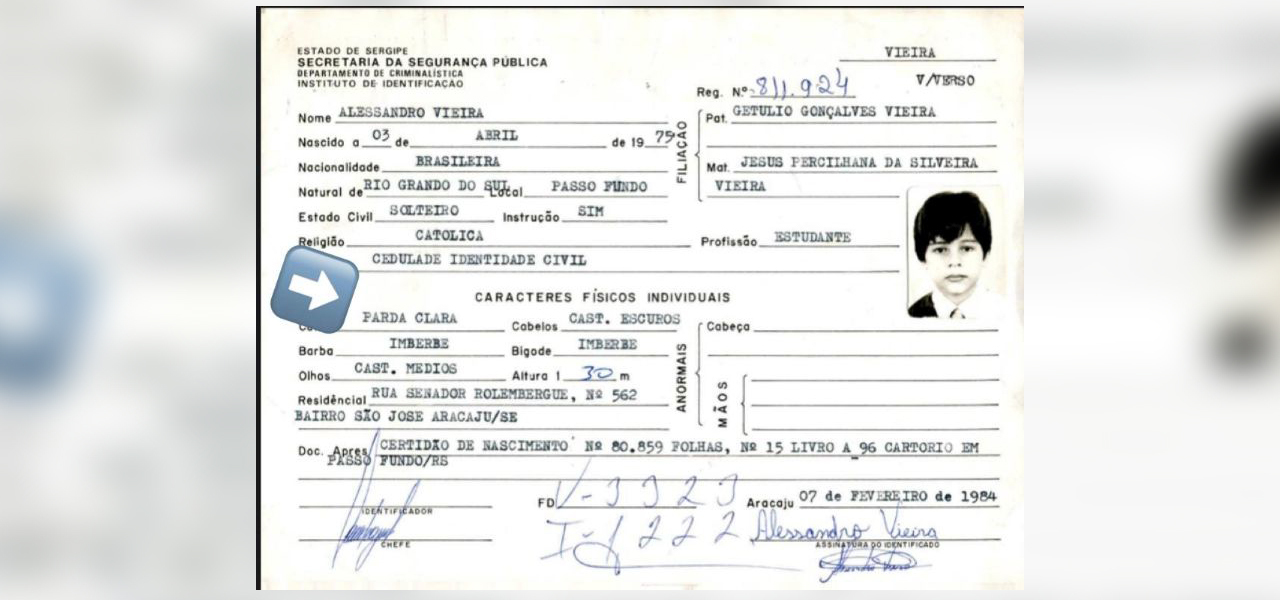 ESTADO DE SERGIPE
SECRETARIA DA SEGURANÇA PÚBLICA
DEPARTAMENTO DE CRIMINALÍSTICA
INSTITUTO DE IDENTIFICAÇÃO
VIEIRA
V/VERSO
Reg. N.º 811.924
Nome ALESSANDRO VIEIRA
Nascido a 03 de ABRIL de 19 75
Nacionalidade BRASILEIRA
Natural de RIO GRANDO DO SUL Local PASSO FUNDO
Estado Civil SOLTEIRO Instrução SIM
Religião CATOLICA
FILIAÇÃO
Pat. GETULIO GONÇALVES VIEIRA
Mat. JESUS PERCILHANA DA SILVEIRA
VIEIRA
Profissão ESTUDANTE
CEDULADE IDENTIDADE CIVIL
CARACTERES FÍSICOS INDIVIDUAIS
PARDA CLARA Cabelos CAST. ESCUROS
Barba IMBERBE Bigode IMBERBE
Olhos CAST. MEDIOS Altura 1 30 m
ANORMAIS
Cabeça
MÃOS
Residêncial RUA SENADOR ROLEMBERGUE, Nº 562
BAIRRO SÃO JOSE ARACAJU/SE
Doc. Apres CERTIDÃO DE NASCIMENTO Nº 80.859 FOLHAS, Nº 15 LIVRO A_96 CARTORIO EM
PASSO FUNDO/RS
IDENTIFICADOR
CHEFE
FD V-3323
I-1222
Aracaju 07 de FEVEREIRO de 1984
Alessandro Vieira
ASSINATURA DO IDENTIFICADO